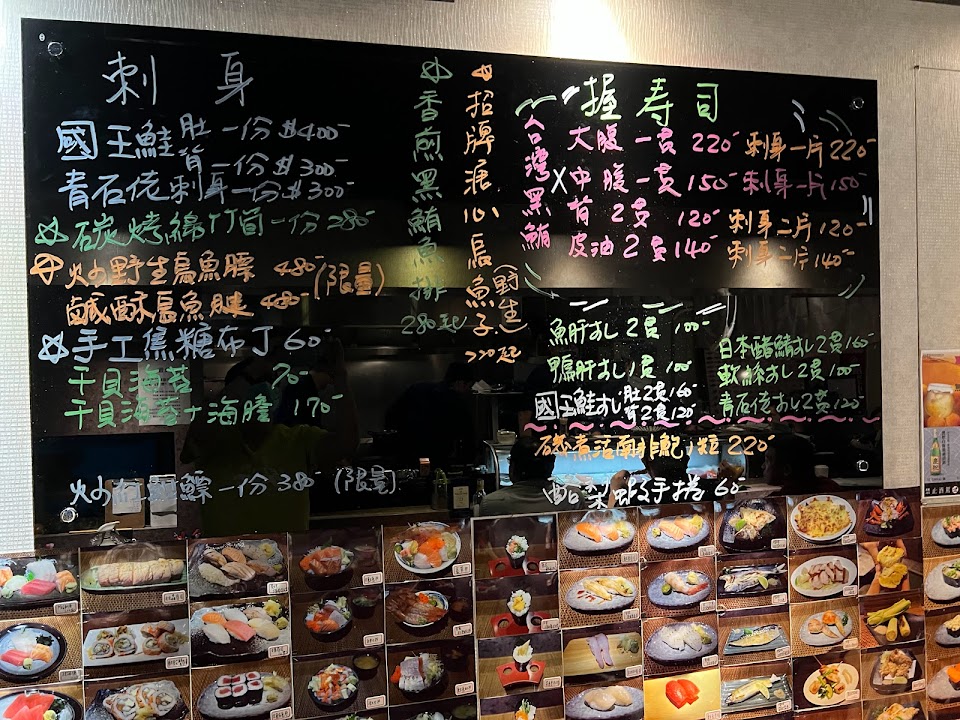 刺身
國王鮭 肚 一份 $400-
背 一份 $300-
青石佬刺身一份$300-
碳烤綠竹筍一份 280-
炒野生烏魚膘 480-(限量)
鹹酥烏魚腱 480-
手工焦糖布丁 60-
干貝海苔 70-
干貝海苔+海膽 170-
一份 380- (限量)
香煎黑鮪魚排
280起
招牌溏心烏魚子(野生)
握寿司
台灣黑鮪
大腹 一貫 220- 刺身一片220-
中腹 一貫 150- 刺身一片150-
背 2貫 120- 刺身二片120-
皮油 2貫 140- 刺身二片140-
魚肝すし 2貫 100-
鴨肝すし 1貫 100-
國王鮭すし 肚2貫160-
背2貫120-
日本鯖すし2貫160-
軟絲すし2貫100-
青石佬すし2貫120-
磯煮活南非鮑1粒 220-
酪梨蝦手捲 60-